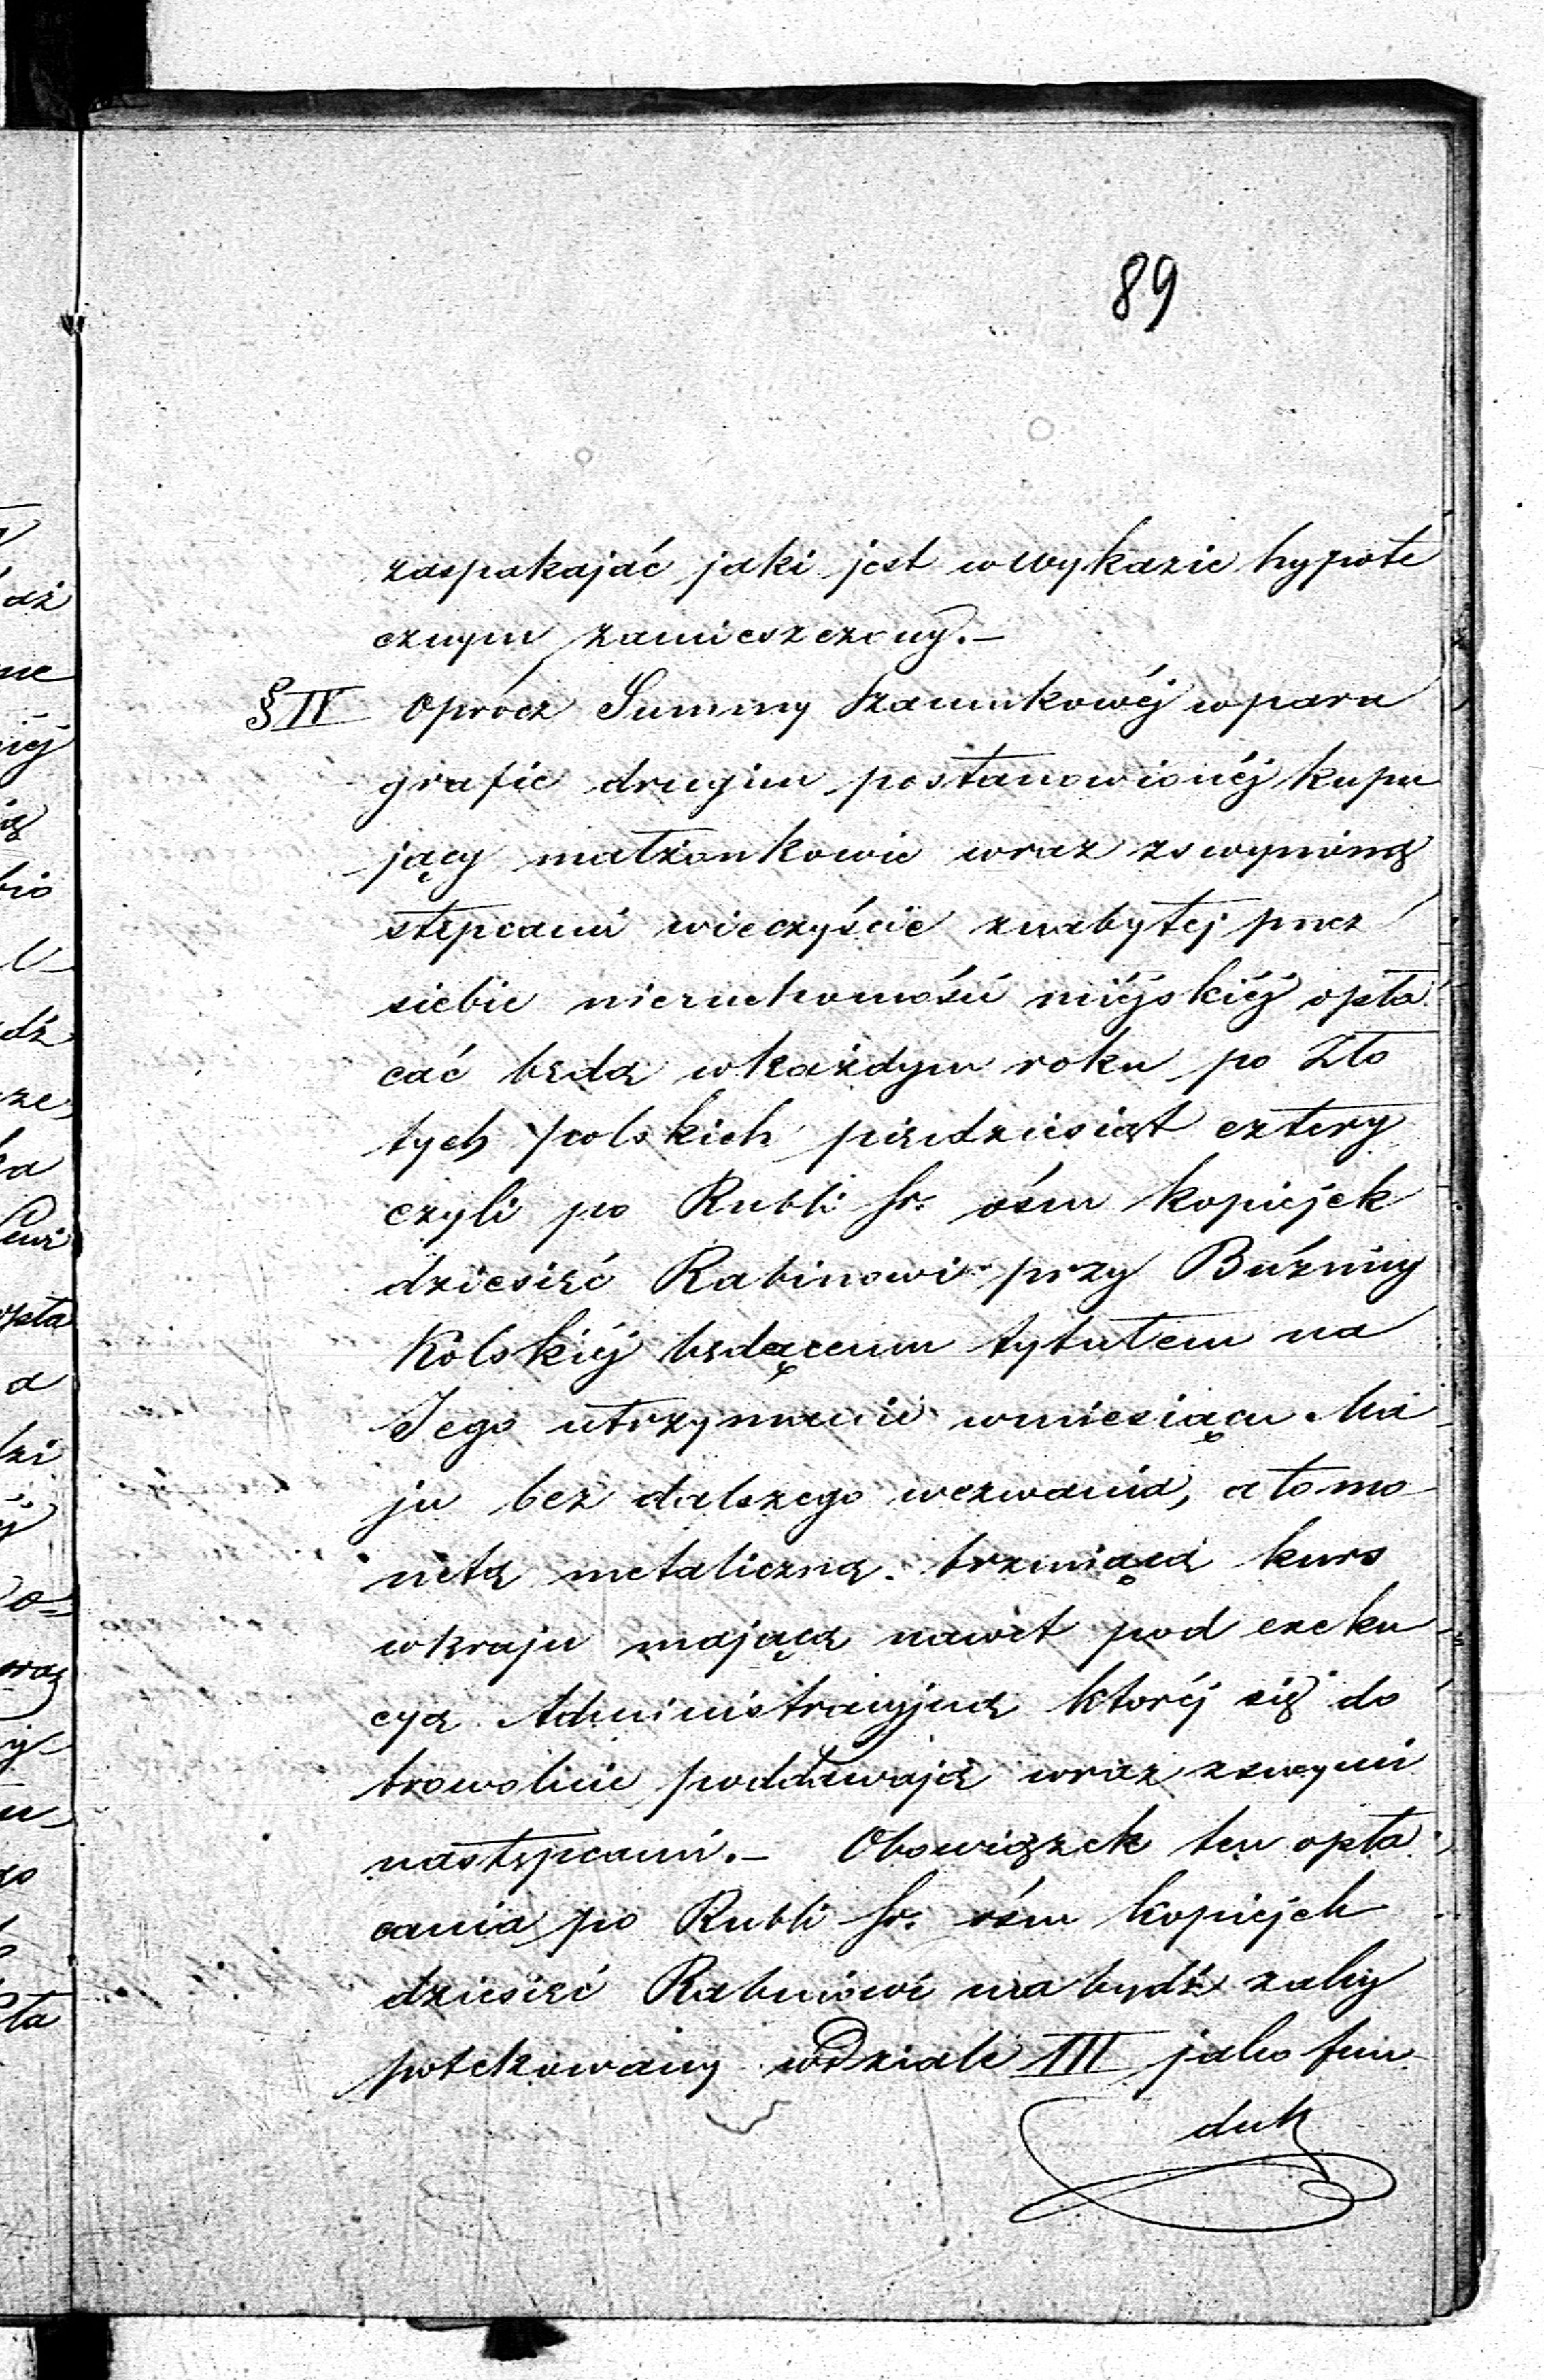 89
zaspakajać jaki jest w wykazie hypote
cznym zamieszczony.—
§ IV Oprócz Summy szacunkowéj w para
grafie drugim postanowionéj kupu
jący małżonkowie wraz z swymi na
stępcami wieczyście z nabytej przez
siebie nieruchomości miéjskiéj opła
cać będą w każdym roku po Zło
tych polskich pięćdziesiąt cztery
czyli po Rubli sr. ośm kopiejek
dziesięć Rabinowi przy Bużnicy
Kolskiéj będącemu tytułem na
Jego utrzymanie w miesiącu Ma
ju bez dalszego wezwania, a to mo
netą metaliczną brzmiącą kurs
w kraju mającą nawet pod exeku
cyą Administracyjną któréj się do
browolnie poddawają wraz z swymi
następcami.— Obowiązek ten opła
cania po Rubli sr. ośm kopiejek
dziesięć Rabinowi ma bydź zahy
potekowany w Dziale III jako fun
duk